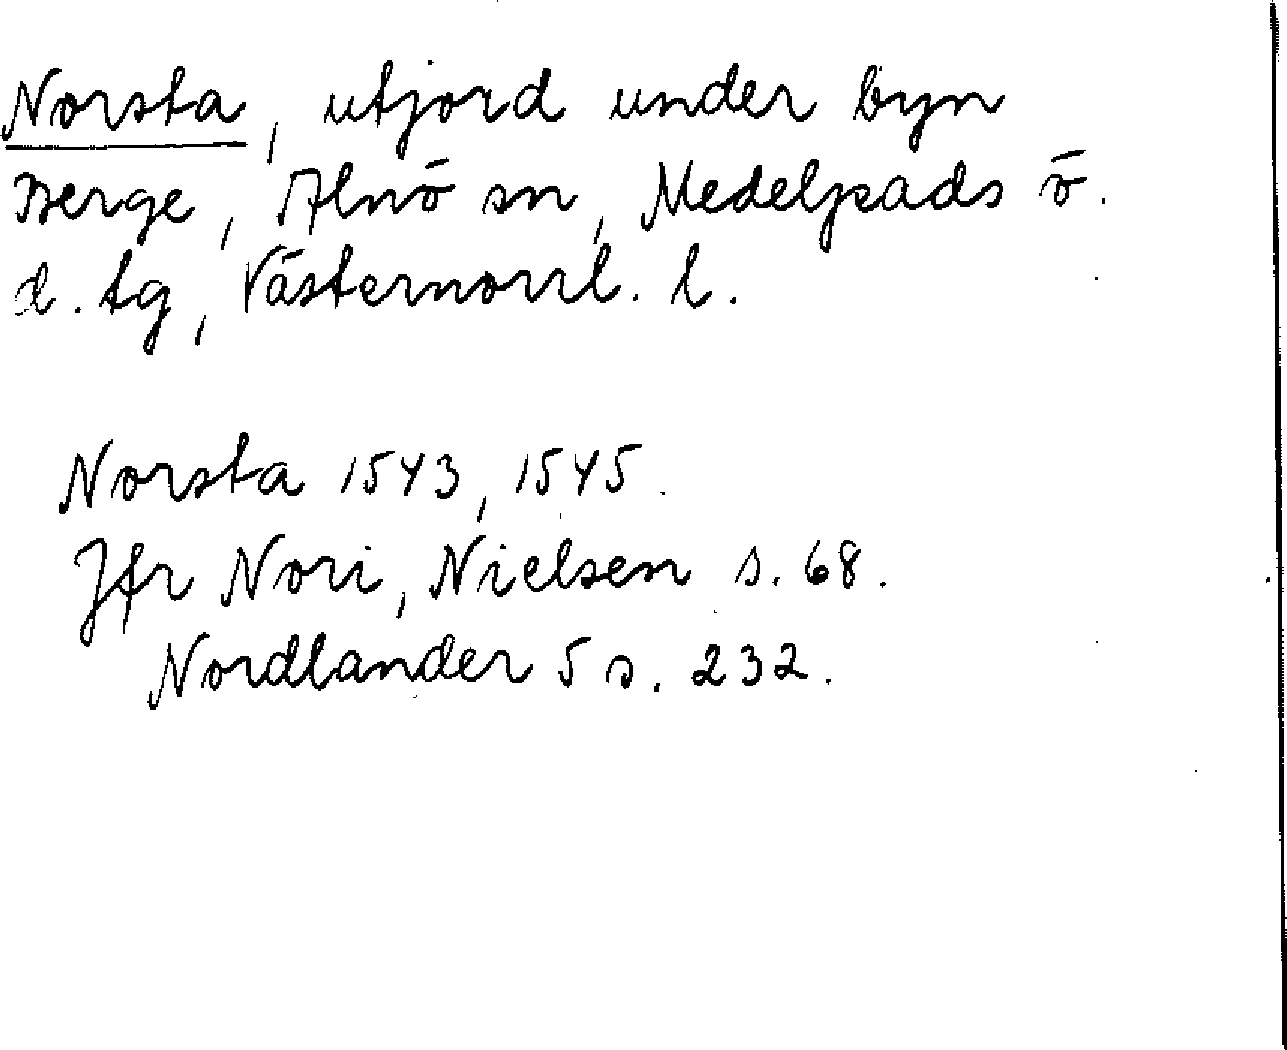 Norsta, utjord under byn
Berge, Alnö sn, Medelpads ö.
d. tg, Västernorrl. l.
Norsta 1543, 1545.
Jfr Nori, Nielsen s. 68.
Nordlander 5 s. 232.